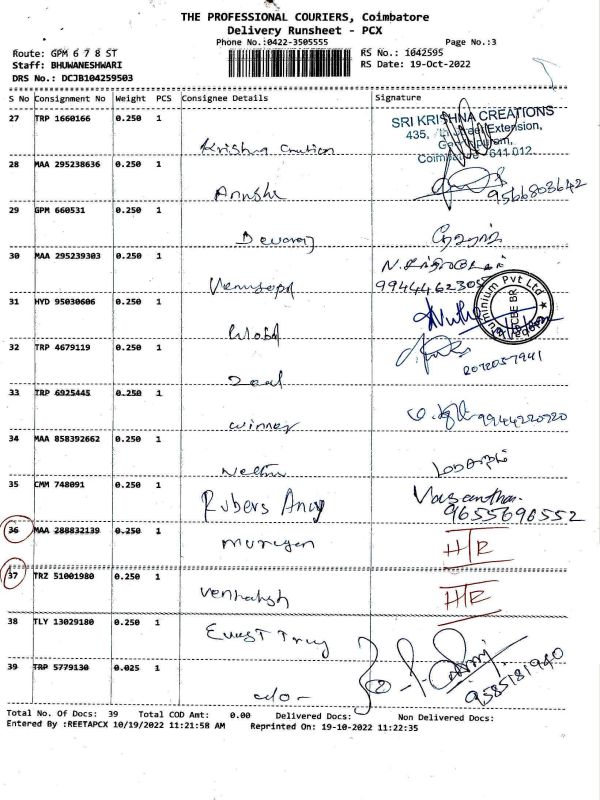 THE PROFESSIONAL COURIERS, Coimbatore
Delivery Runsheet - PCX
Phone No.:0422-3505555 Page No.:3
Route: GPM 6 7 8 ST RS No.: 1042595
Staff: BHUWANESHWARI RS Date: 19-Oct-2022
DRS No.: DCJB104259503
S No Consignment No Weight PCS Consignee Details Signature
27 TRP 1660166 0.250 1
SRI KRISHNA CREATIONS
435, Street Extension,
641 012
Krishna Creation
28 MAA 295238636 0.250 1
9566803642
29 GPM 660531 0.250 1
Devaraj
30 MAA 295239303 0.250 1
Venugopal
31 HYD 95030606 0.250 1
Pvt Ltd
32 TRP 4679119 0.250 1
Zeal
33 TRP 6925445 0.250 1
winner 9944220920
34 MAA 858392662 0.250 1
35 CMM 748091 0.250 1
Rubers Vasanthan.
9655696552
36 MAA 288832139 0.250 1
murugan
37 TRZ 51001980 0.250 1
Venkatesh
38 TLY 13029180 0.250 1
39 TRP 5779130 0.025 1
9585181940
c/o-
Total No. Of Docs: 39 Total COD Amt: 0.00 Delivered Docs: Non Delivered Docs:
Entered By :REETAPCX 10/19/2022 11:21:58 AM Reprinted On: 19-10-2022 11:22:35